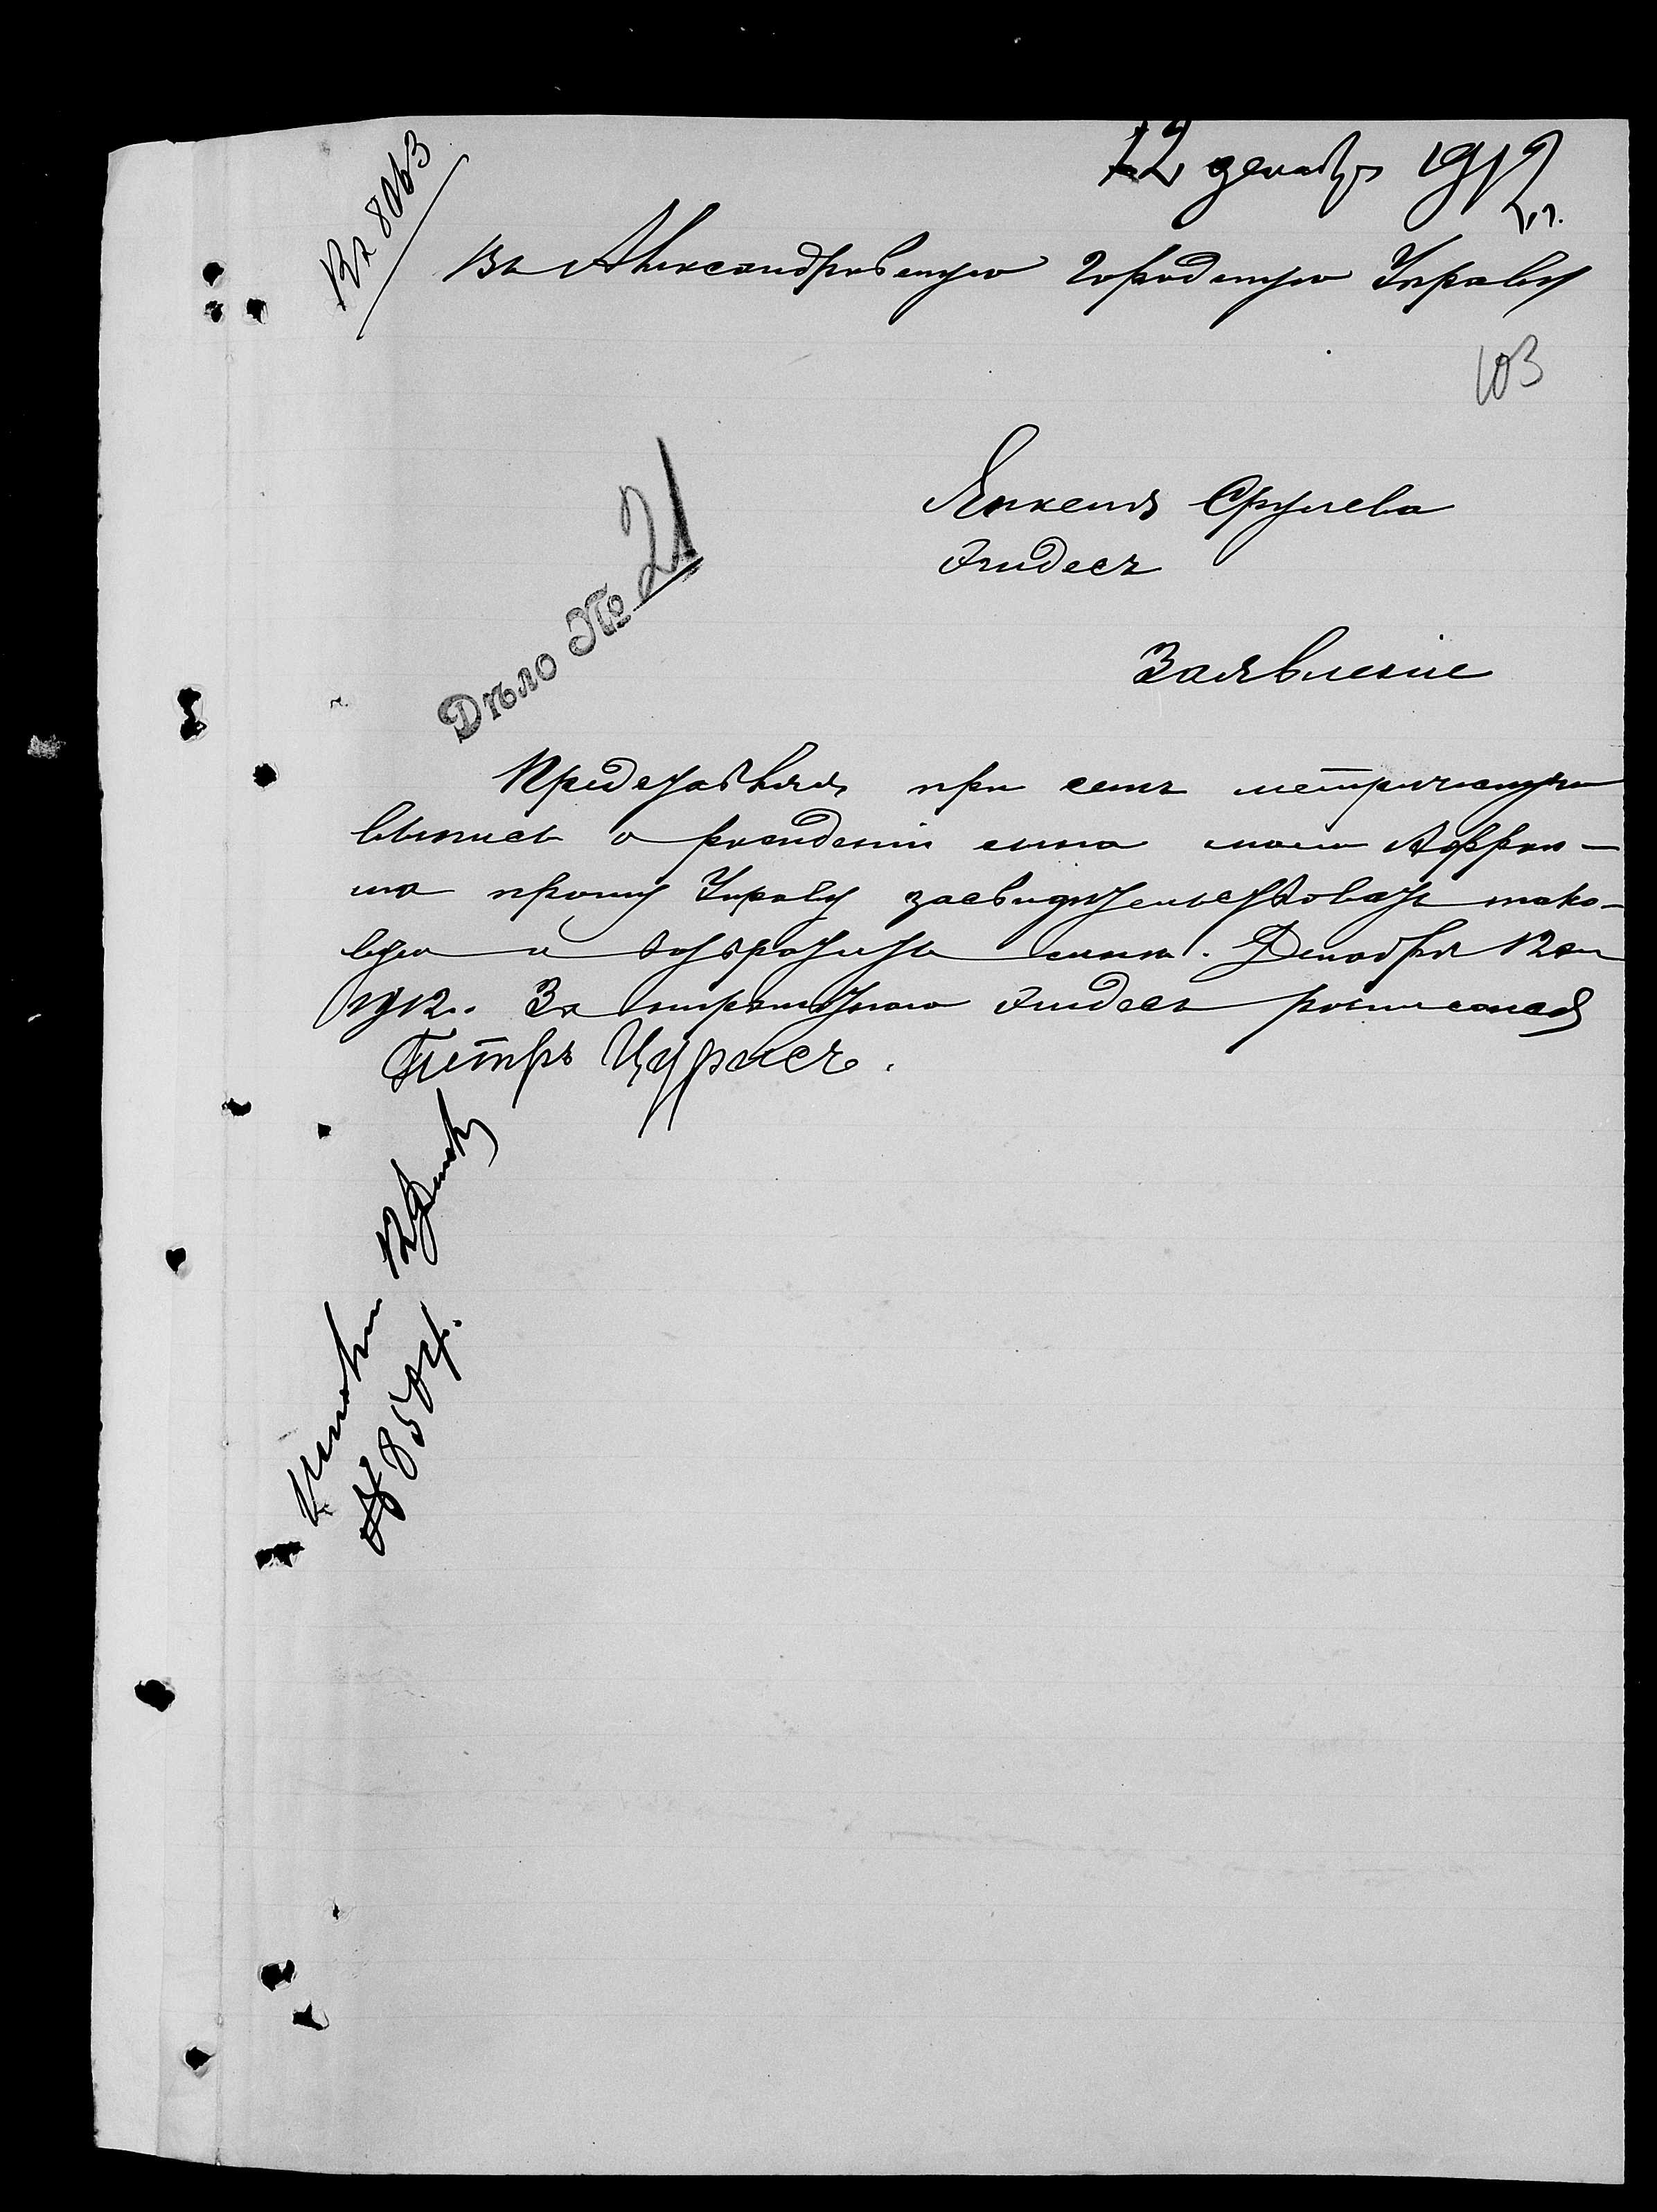 12 декабря 1912 г.
Вх 8063
Въ Александровскую Городскую Управу
103
Янкеля Срулева
Гиндесъ
Дѣло № 21
Заявленіе
Представляя при семъ метрическую
выпись о рожденіи сына моего
прошу Управу засвидѣтельствовать тако-
вую и возвратить мнѣ. Декабря 12 дня
1912 г. За неграмотнаго Гиндесъ росписался
Петръ
12 Декаб
№ 8574.